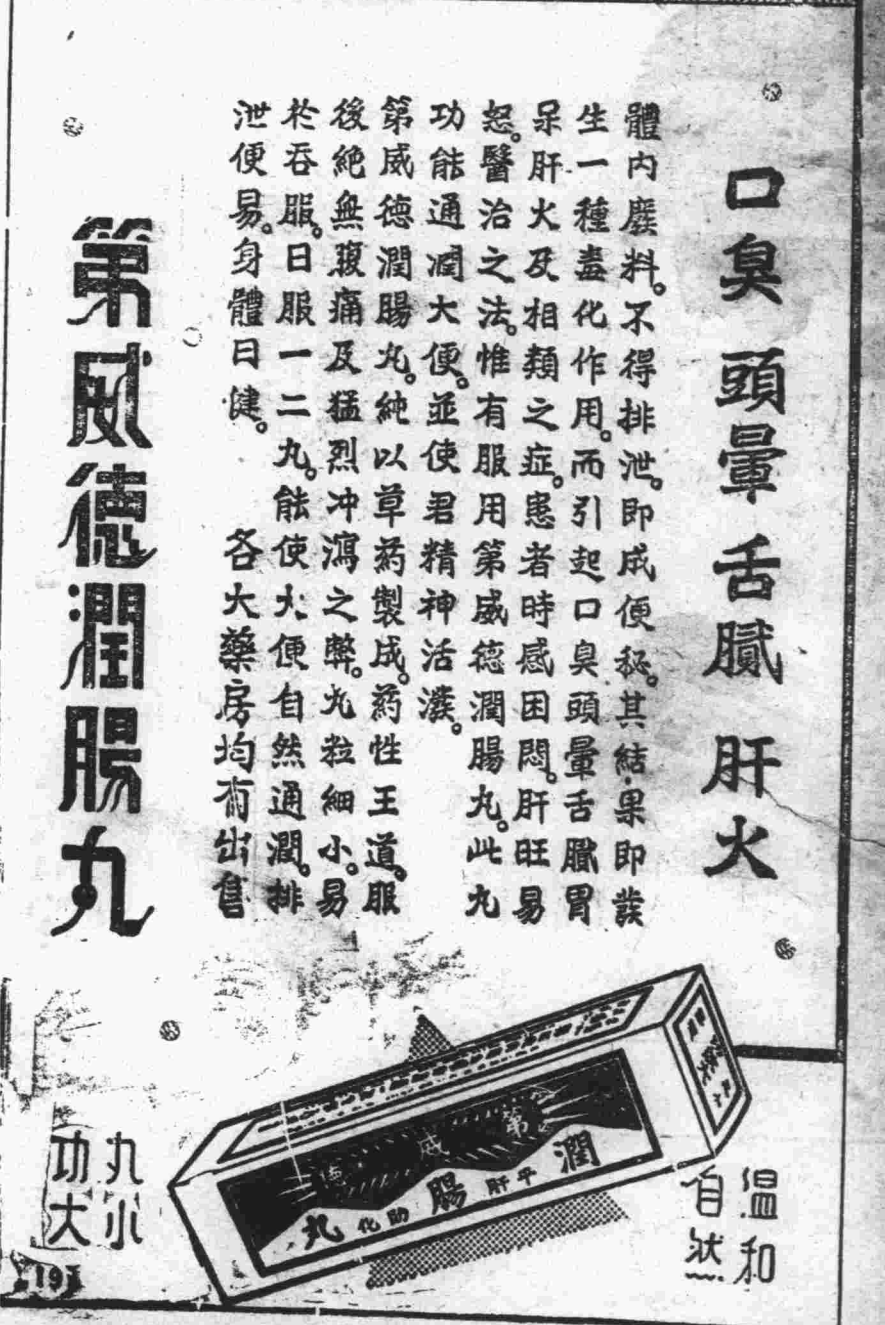 口臭 頭暈 舌膩 肝火
體内廢料。不得排泄。即成便秘。其結果即發
生一種毒化作用。而引起口臭頭暈舌膩胃
呆肝火及相類之症。患者時感困悶。肝旺易
怒。醫治之法。惟有服用第威德潤腸丸。此丸
功能通潤大便。並使君精神活潑。
第威德潤腸丸。純以草药製成。药性王道。服
後絶無腹痛及猛烈冲瀉之弊。丸粒細小。易
於吞服。日服一二丸。能使大便自然通潤。排
泄便易。身體日健。
各大藥房均有出售
第威德潤腸丸
第威德
潤平肝腸助化丸
温和
自然
丸小
功大